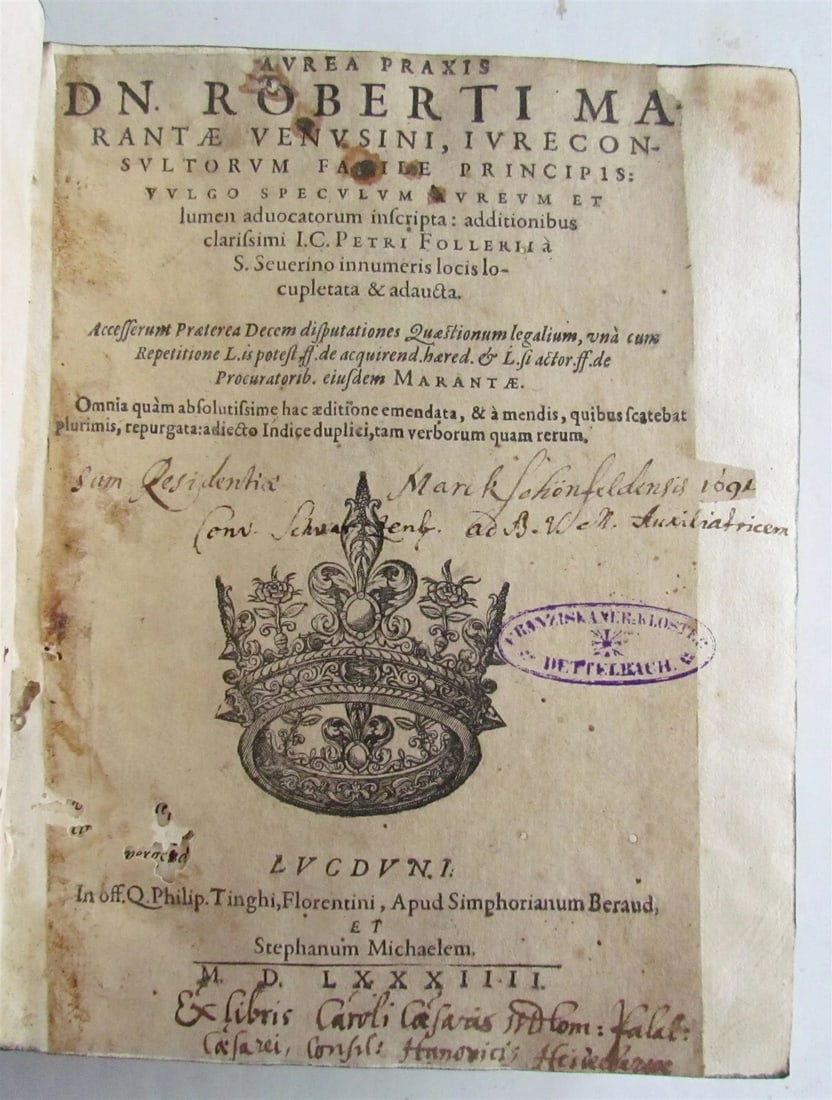 AVREA PRAXIS
DN. ROBERTI MA-
RANTÆ VENVSINI, IVRECON-
SVLTORVM FACILE PRINCIPIS:
VVLGO SPECVLVM AVREVM ET
lumen aduocatorum inſcripta: additionibus
clariſſimi I.C. PETRI FOLLERII à
S. Seuerino innumeris locis lo-
cupletata & adaucta.
Acceſſerunt Præterea Decem diſputationes Quæstionum legalium, vnà cum
Repetitione L. is potest ff. de acquirend. hæred. & L. ſi actor ff. de
Procuratorib. eiuſdem MARANTÆ.
Omnia quàm abſolutiſſime hac æditione emendata, & à mendis, quibus ſcatebat
plurimis, repurgata: adiecto Indice duplici, tam verborum quam rerum.
sum Residentiæ Marckschönfeldensis 1691
Conv. ad B. V. M. Auxiliatricem
FRANZISKANER-KLOSTER
DETTELBACH.
LVGDVNI.
In off. Q. Philip. Tinghi, Florentini, Apud Simphorianum Beraud,
ET
Stephanum Michaelem.
M. D. LXXXIIII.
Ex libris Caroli Cæsaris Com: Palat:
Cæsarei, Consil: